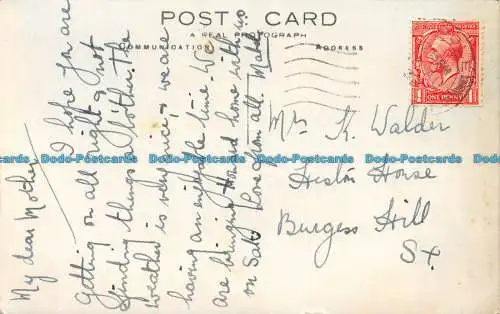 POST CARD
A REAL PHOTOGRAPH
COMMUNICATION
ADDRESS
ONE PENNY
My dear Mother
I hope you are
getting on all right & not
finding things a bother. The
weather is very nice & we are
having an enjoyable time. We
are bringing home with us
on Sat. Love from all.
Mrs K. Walder
Heston House
Burgess Hill
Sx
Dodo-Postcards Dodo-Postcards Dodo-Postcards Dodo-Postcards